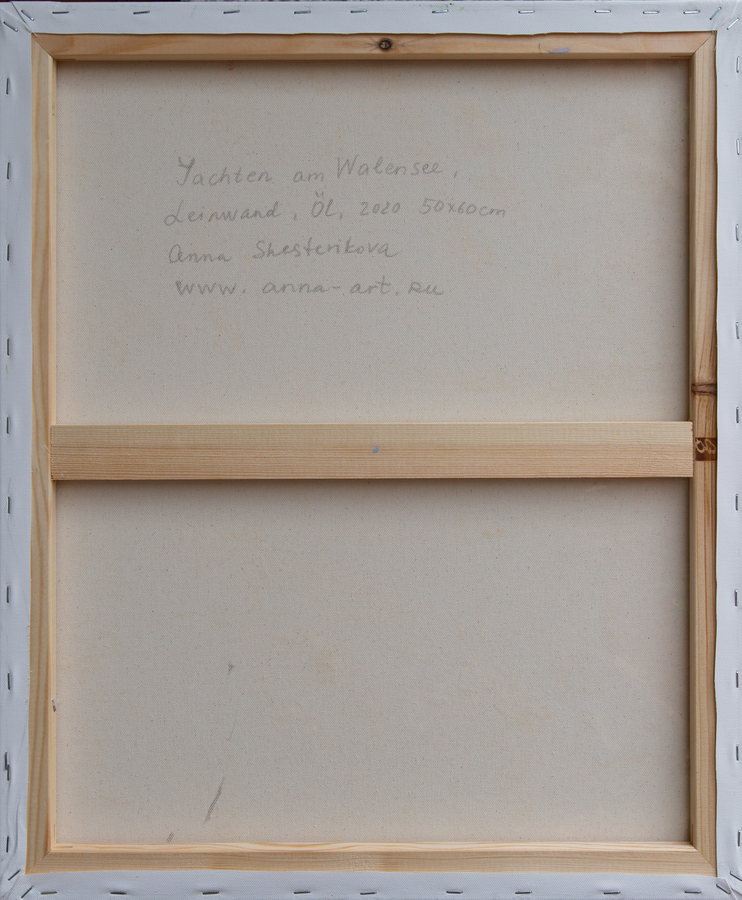 Yachten am Walensee,
Leinwand, Öl, 2020 50x60cm
Anna Shesterikova
www.anna-art.ru